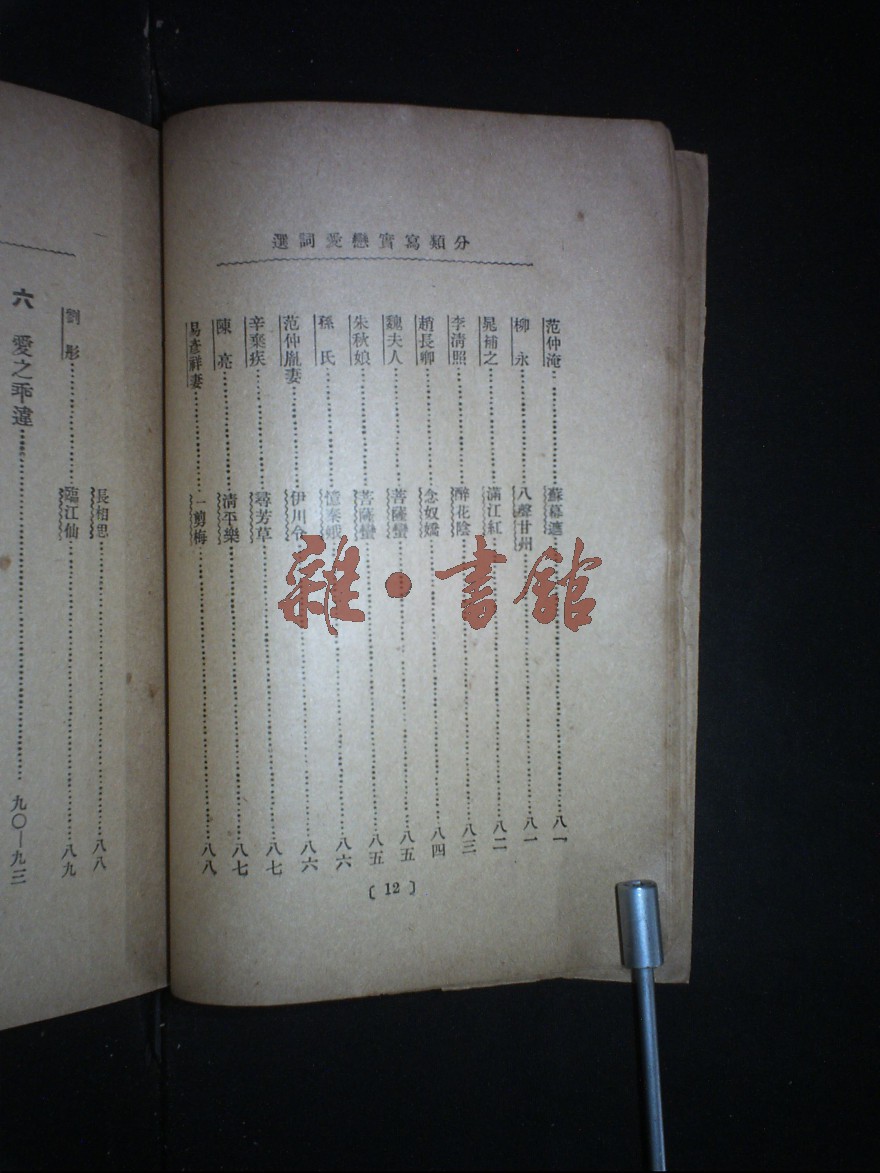 分類寫實戀愛詞選
范仲淹 蘇幕遮 八一
柳永 八聲甘州 八一
晁補之 滿江紅 八二
李清照 醉花陰 八三
趙長卿 念奴嬌 八四
魏夫人 菩薩蠻 八五
朱秋娘 菩薩蠻 八五
孫氏 憶秦娥 八六
范仲胤妻 伊川令 八六
辛棄疾 尋芳草 八七
陳亮 清平樂 八七
易彥祥妻 一剪梅 八八
〔12〕
長相思 八八
劉彤 臨江仙 八九
六 愛之乖違 九〇—九三
雜·書館